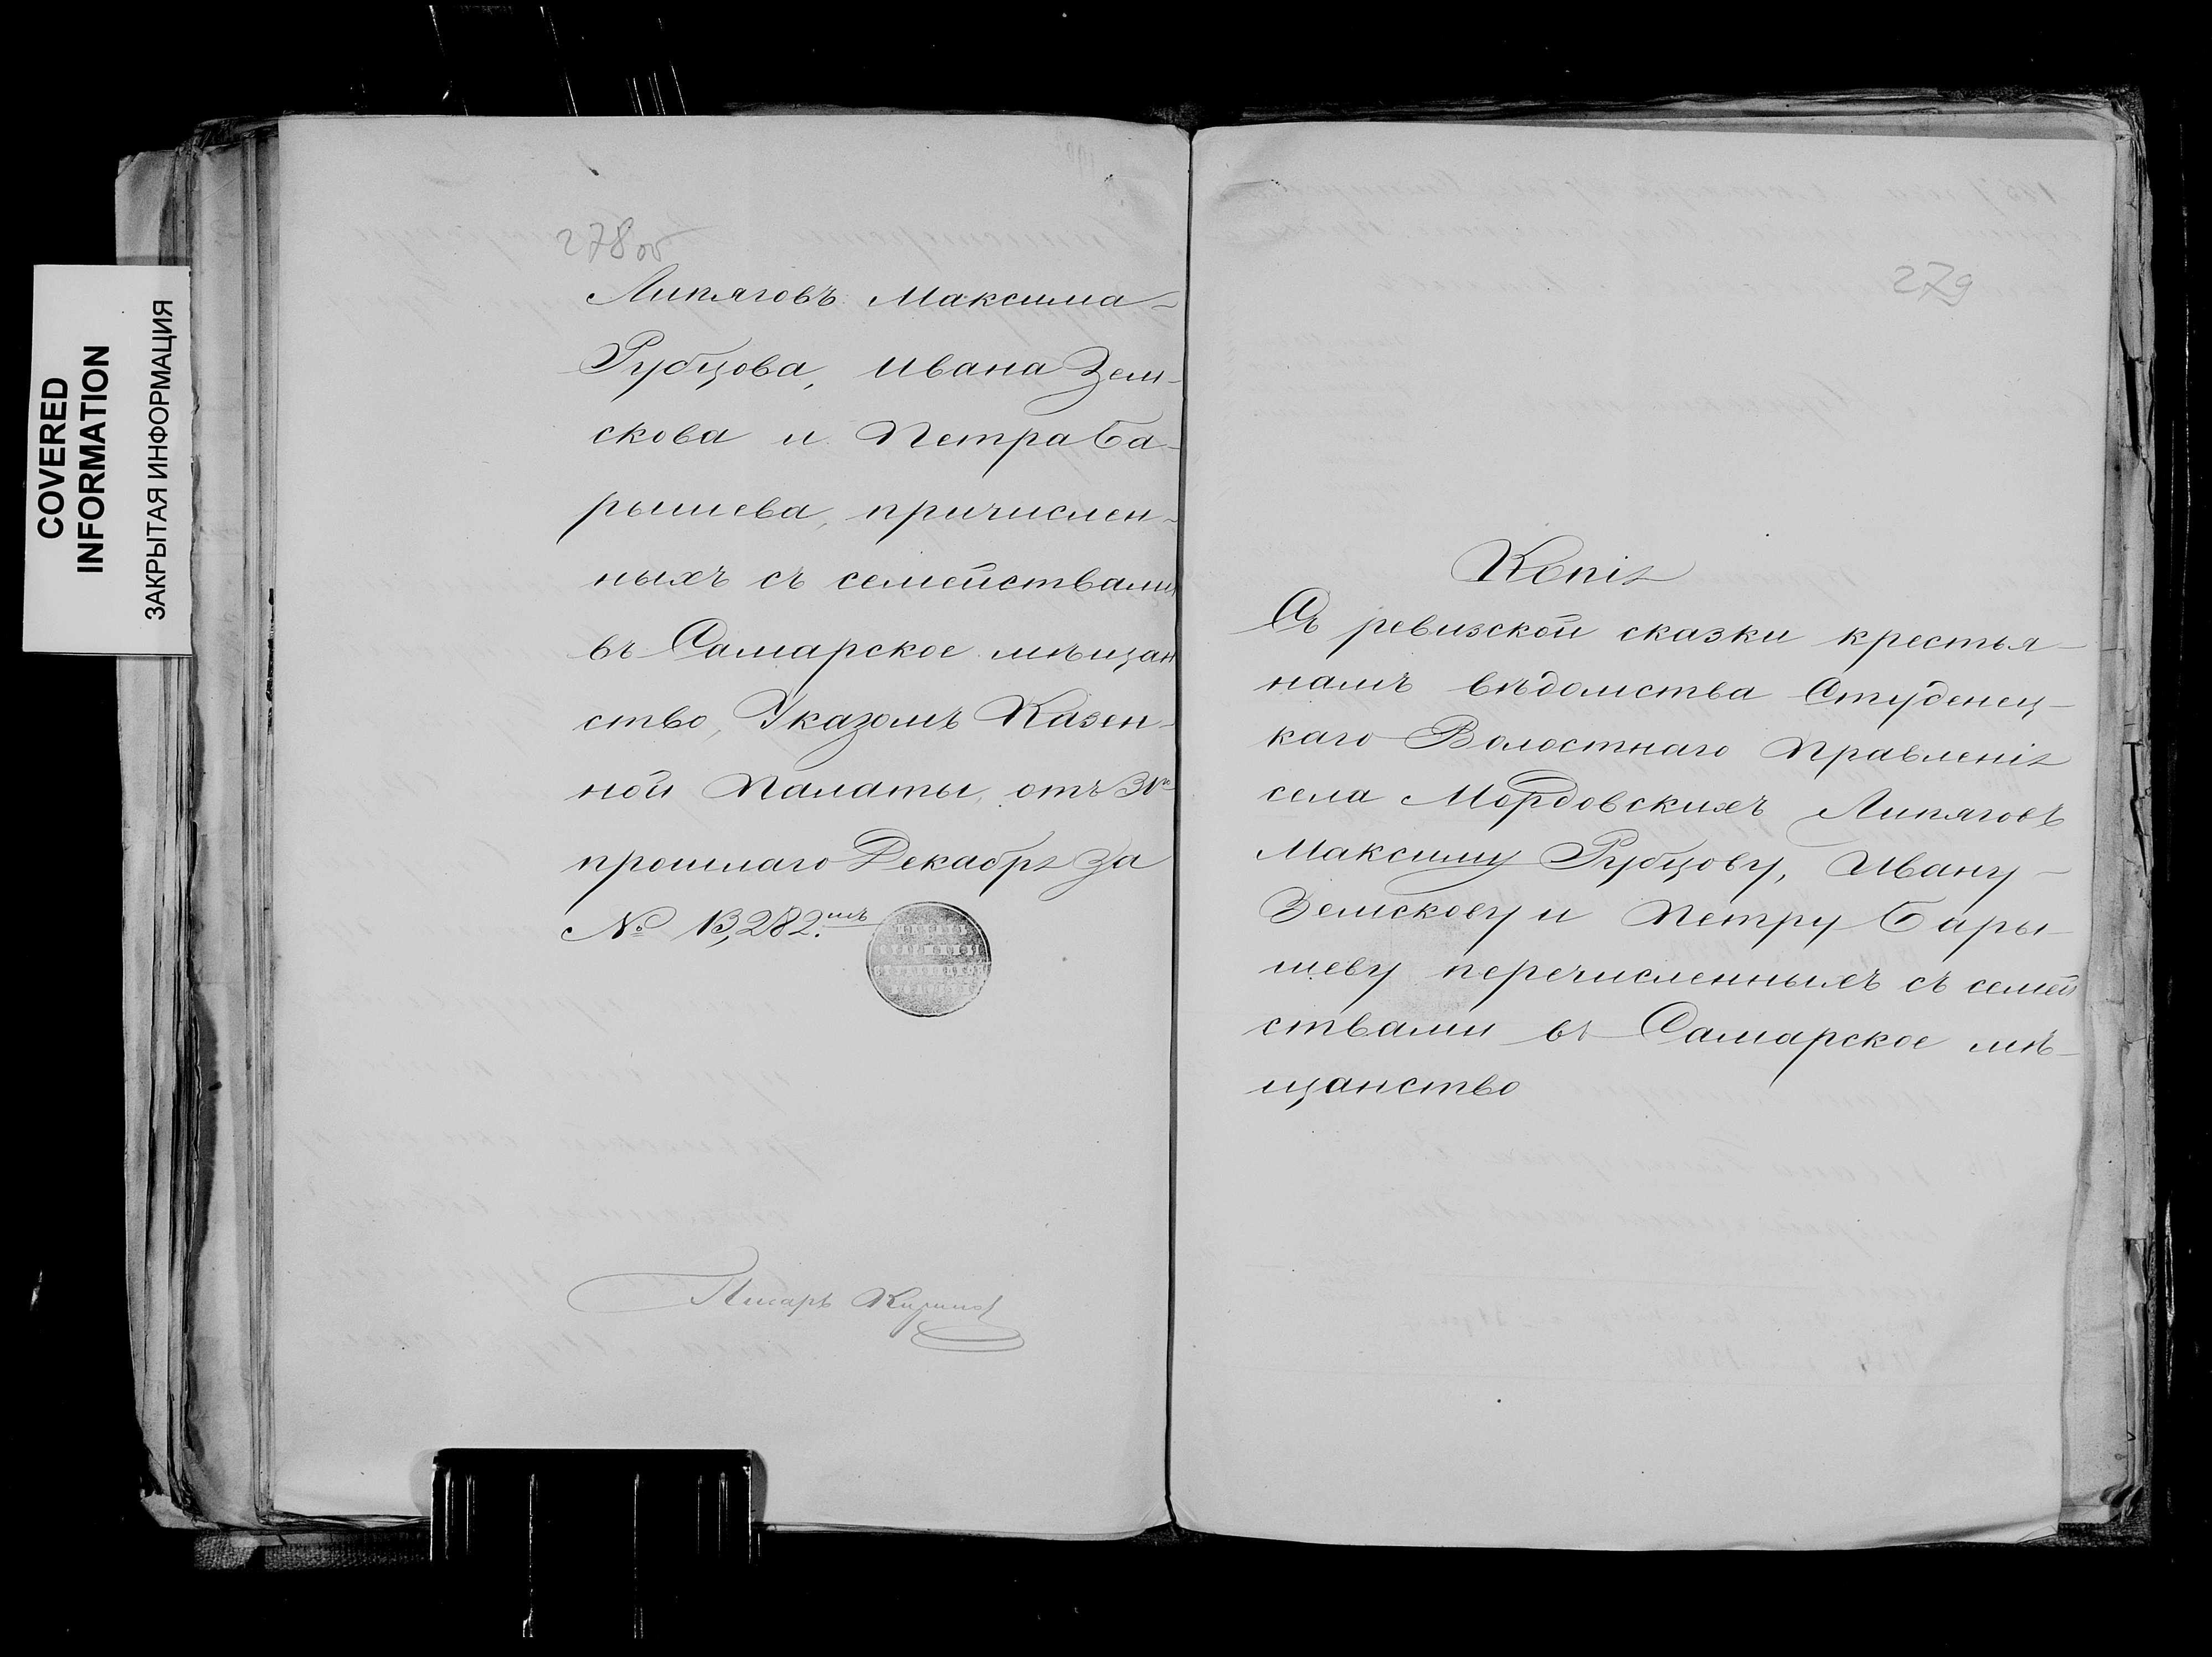 COVERED
INFORMATION
ЗАКРЫТАЯ ИНФОРМАЦИЯ
278 об
Липяговъ Максима
Рубцова, Ивана Зем-
скова и Петра Ба-
рышева, причислен-
ныхъ съ семействами
въ Самарское мѣщан
ство, Указомъ Казен-
ной Палаты, отъ 31го
прошлаго Декабря за
№ 13,282.мъ
Писарь
279
Копія
Съ ревизской сказки крестья-
намъ вѣдомства Студенец-
каго Волостнаго Правленія
села Мордовскихъ Липяговъ
Максиму Рубцову, Ивану
Земскову и Петру Бары-
шеву перечисленнымъ съ семей
ствами въ Самарское мѣ-
щанство